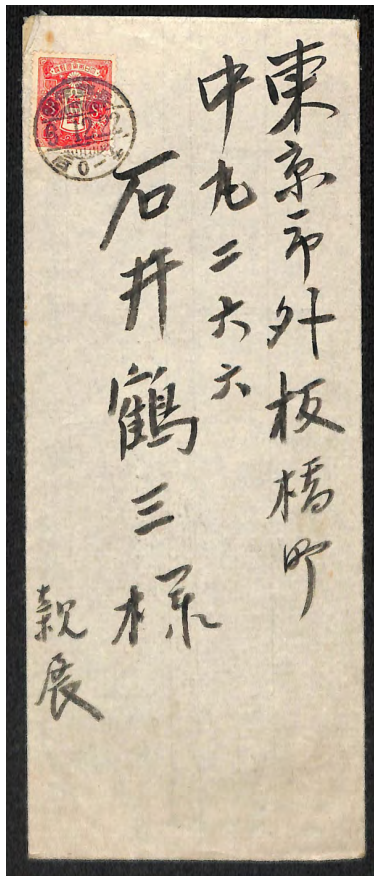 東京市外板橋町
中丸二六六
石井鶴三様
親展